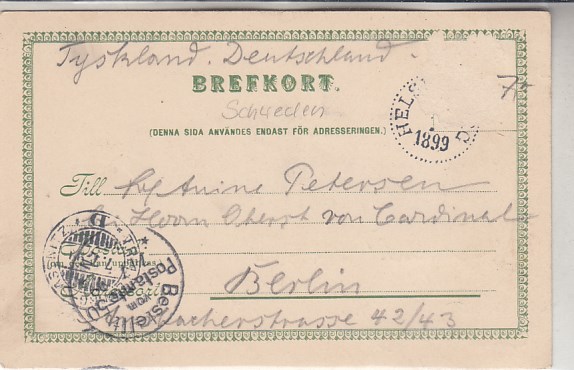 Tyskland. Deutschland.
BREFKORT.
Schweden
(DENNA SIDA ANVÄNDES ENDAST FÖR ADRESSERINGEN.)
HELS
1
1899
7,-
Till Petersen
Herrn Oberst von Cardinal
Berlin
acherstrasse 42/43
Bestellt
vom
Postamte 50